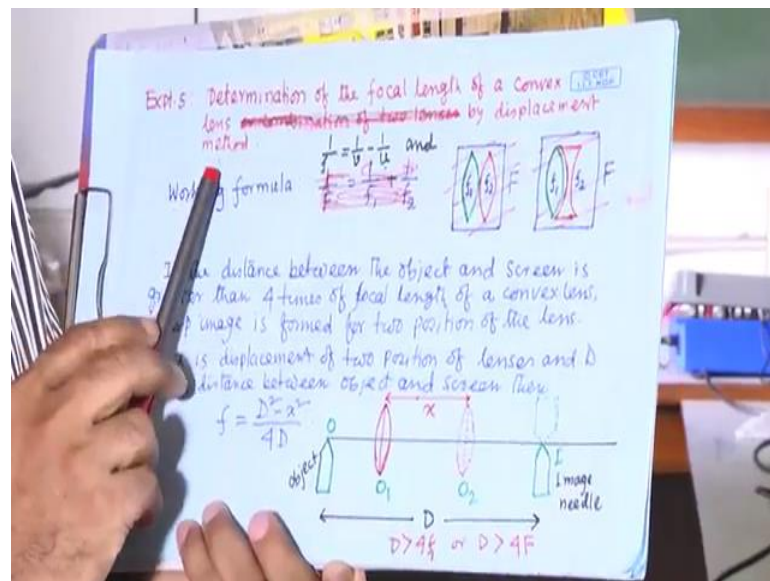 Expt. 5: Determination of the focal length of a convex
lens by displacement
method.
1/f = 1/v - 1/u and
Working formula
1/F = 1/f1 + 1/f2
f1 f2 F
f1 f2 F
the distance between the object and screen is
than 4 times of focal length of a convex lens,
image is formed for two position of the lens.
is displacement of two position of lenses and D
distance between object and screen then
f = D²-x²/4D
x
O
I
object
O1
O2
Image
needle
D
D>4f or D>4F